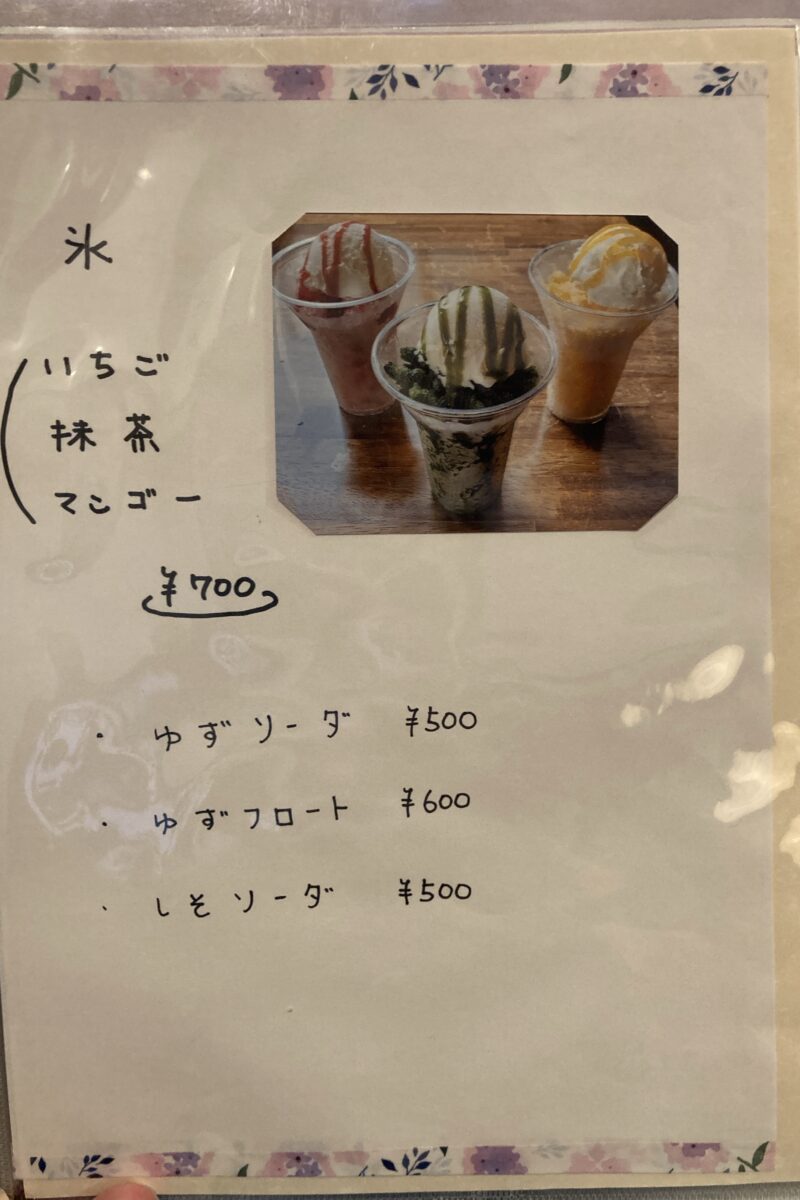 氷
いちご
抹茶
マンゴー
¥700
・ ゆずソーダ ¥500
・ ゆずフロート ¥600
・ しそソーダ ¥500